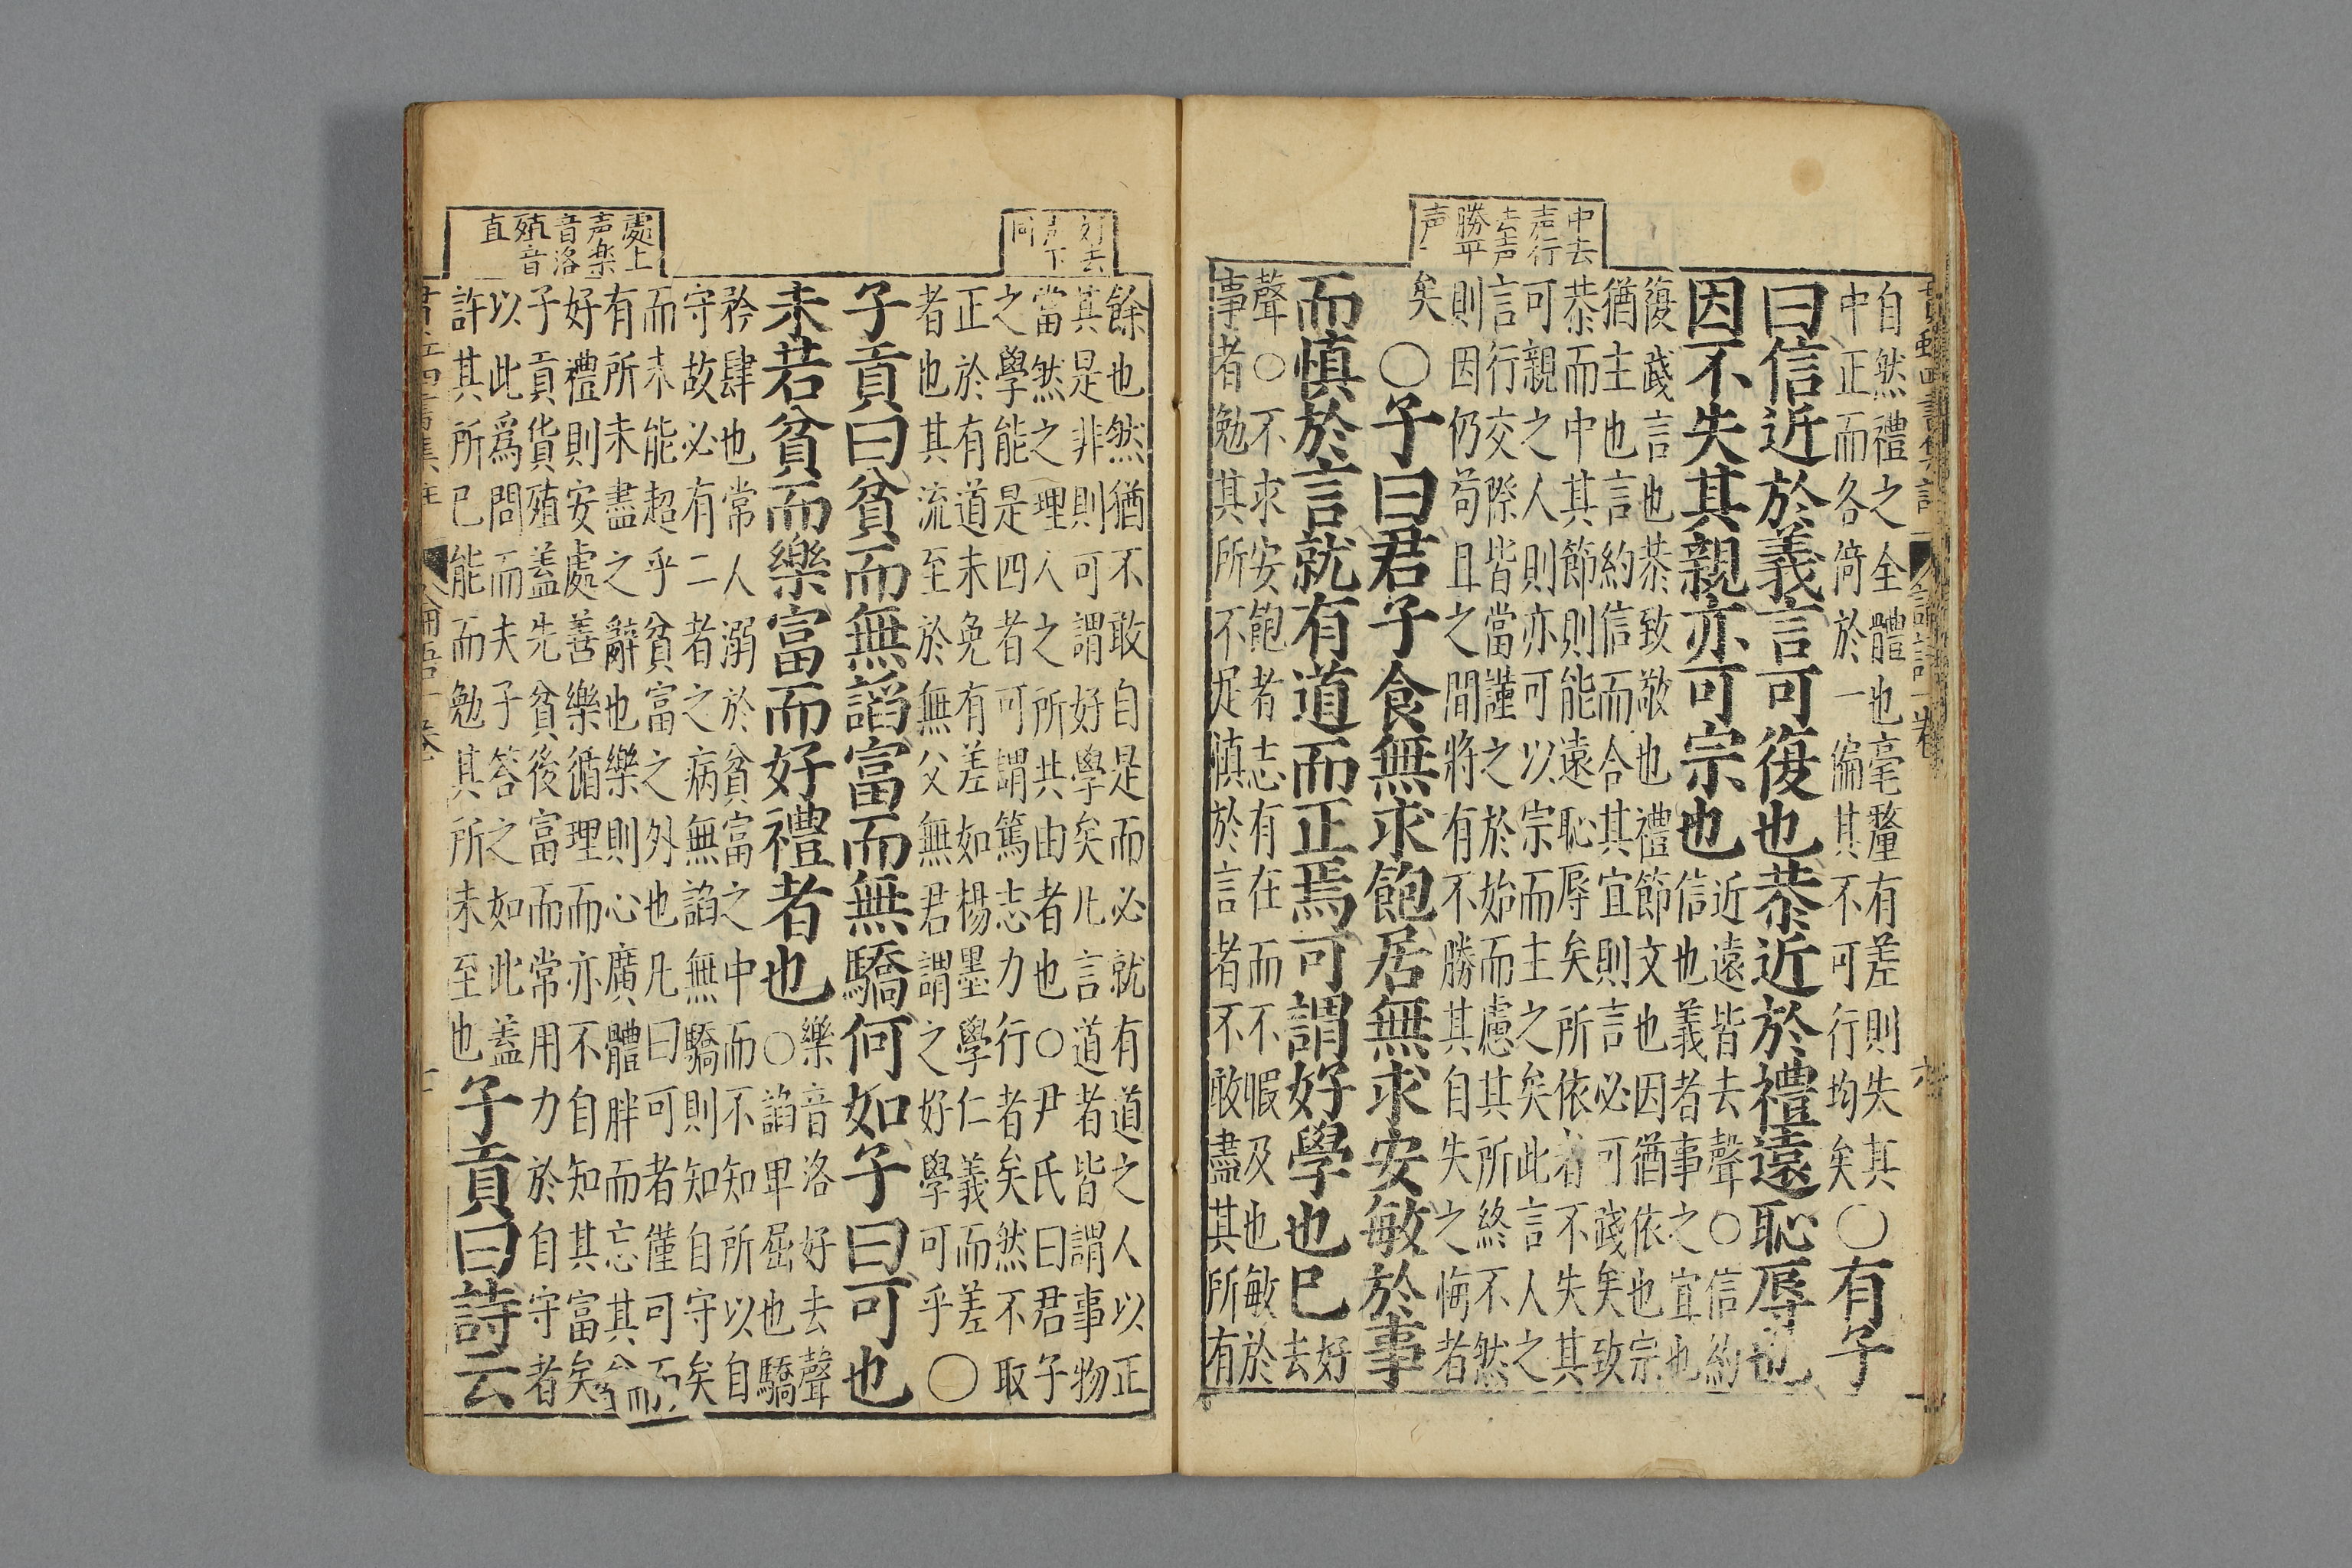 中去
声行
去声
勝平
声
自然禮之全體也毫釐有差則失其
中正而各倚於一偏其不可行均矣
○有子
曰信近於義言可復也恭近於禮遠恥辱也
因不失其親亦可宗也
近遠皆去聲○信約
信也義者事之宜也
復踐言也恭致敬也禮節文也因猶依也宗
猶主也言約信而合其宜則言必可踐矣致
恭而中其節則能遠恥辱矣所依者不失其
可親之人則亦可以宗而主之矣此言人之
言行交際皆當謹之於始而慮其所終不然
則因仍苟且之間將有不勝其自失之悔者
矣
○子曰君子食無求飽居無求安敏於事
而慎於言就有道而正焉可謂好學也已
好
去
聲○不求安飽者志有在而不暇及也敏於
事者勉其所不足慎於言者不敢盡其所有
好去
声下
同
處上
声楽
音洛
殖音
直
餘也然猶不敢自是而必就有道之人以正
其是非則可謂好學矣凡言道者皆謂事物
當然之理人之所共由者也○尹氏曰君子
之學能是四者可謂篤志力行者矣然不取
正於有道未免有差如楊墨學仁義而差
者也其流至於無父無君謂之好學可乎○
子貢曰貧而無諂富而無驕何如子曰可也
未若貧而樂富而好禮者也
樂音洛好去聲
○諂卑屈也驕
矜肆也常人溺於貧富之中而不知所以自
守故必有二者之病無諂無驕則知自守矣
而未能超乎貧富之外也凡曰可者僅可而
有所未盡之辭也樂則心廣體胖而忘其貧
好禮則安處善樂循理而亦不自知其富矣
子貢貨殖蓋先貧後富而常用力於自守者
以此爲問而夫子答之如此蓋
許其所已能而勉其所未至也
子貢曰詩云